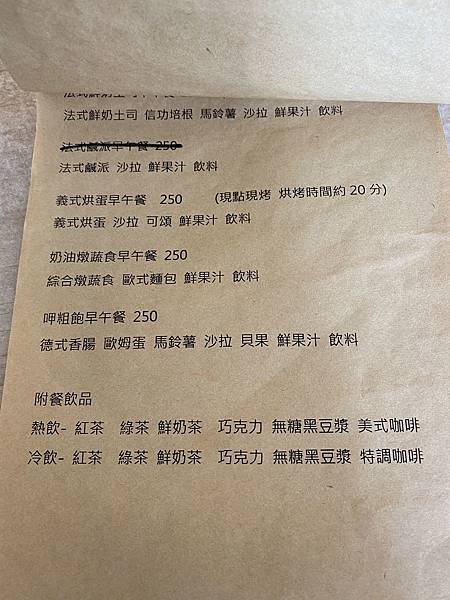 法式鮮奶土司 信功培根 馬鈴薯 沙拉 鮮果汁 飲料
法式鹹派早午餐 250
法式鹹派 沙拉 鮮果汁 飲料
義式烘蛋早午餐 250 (現點現烤 烘烤時間約20分)
義式烘蛋 沙拉 可頌 鮮果汁 飲料
奶油燉蔬食早午餐 250
綜合燉蔬食 歐式麵包 鮮果汁 飲料
呷粗飽早午餐 250
德式香腸 歐姆蛋 馬鈴薯 沙拉 貝果 鮮果汁 飲料
附餐飲品
熱飲- 紅茶 綠茶 鮮奶茶 巧克力 無糖黑豆漿 美式咖啡
冷飲- 紅茶 綠茶 鮮奶茶 巧克力 無糖黑豆漿 特調咖啡